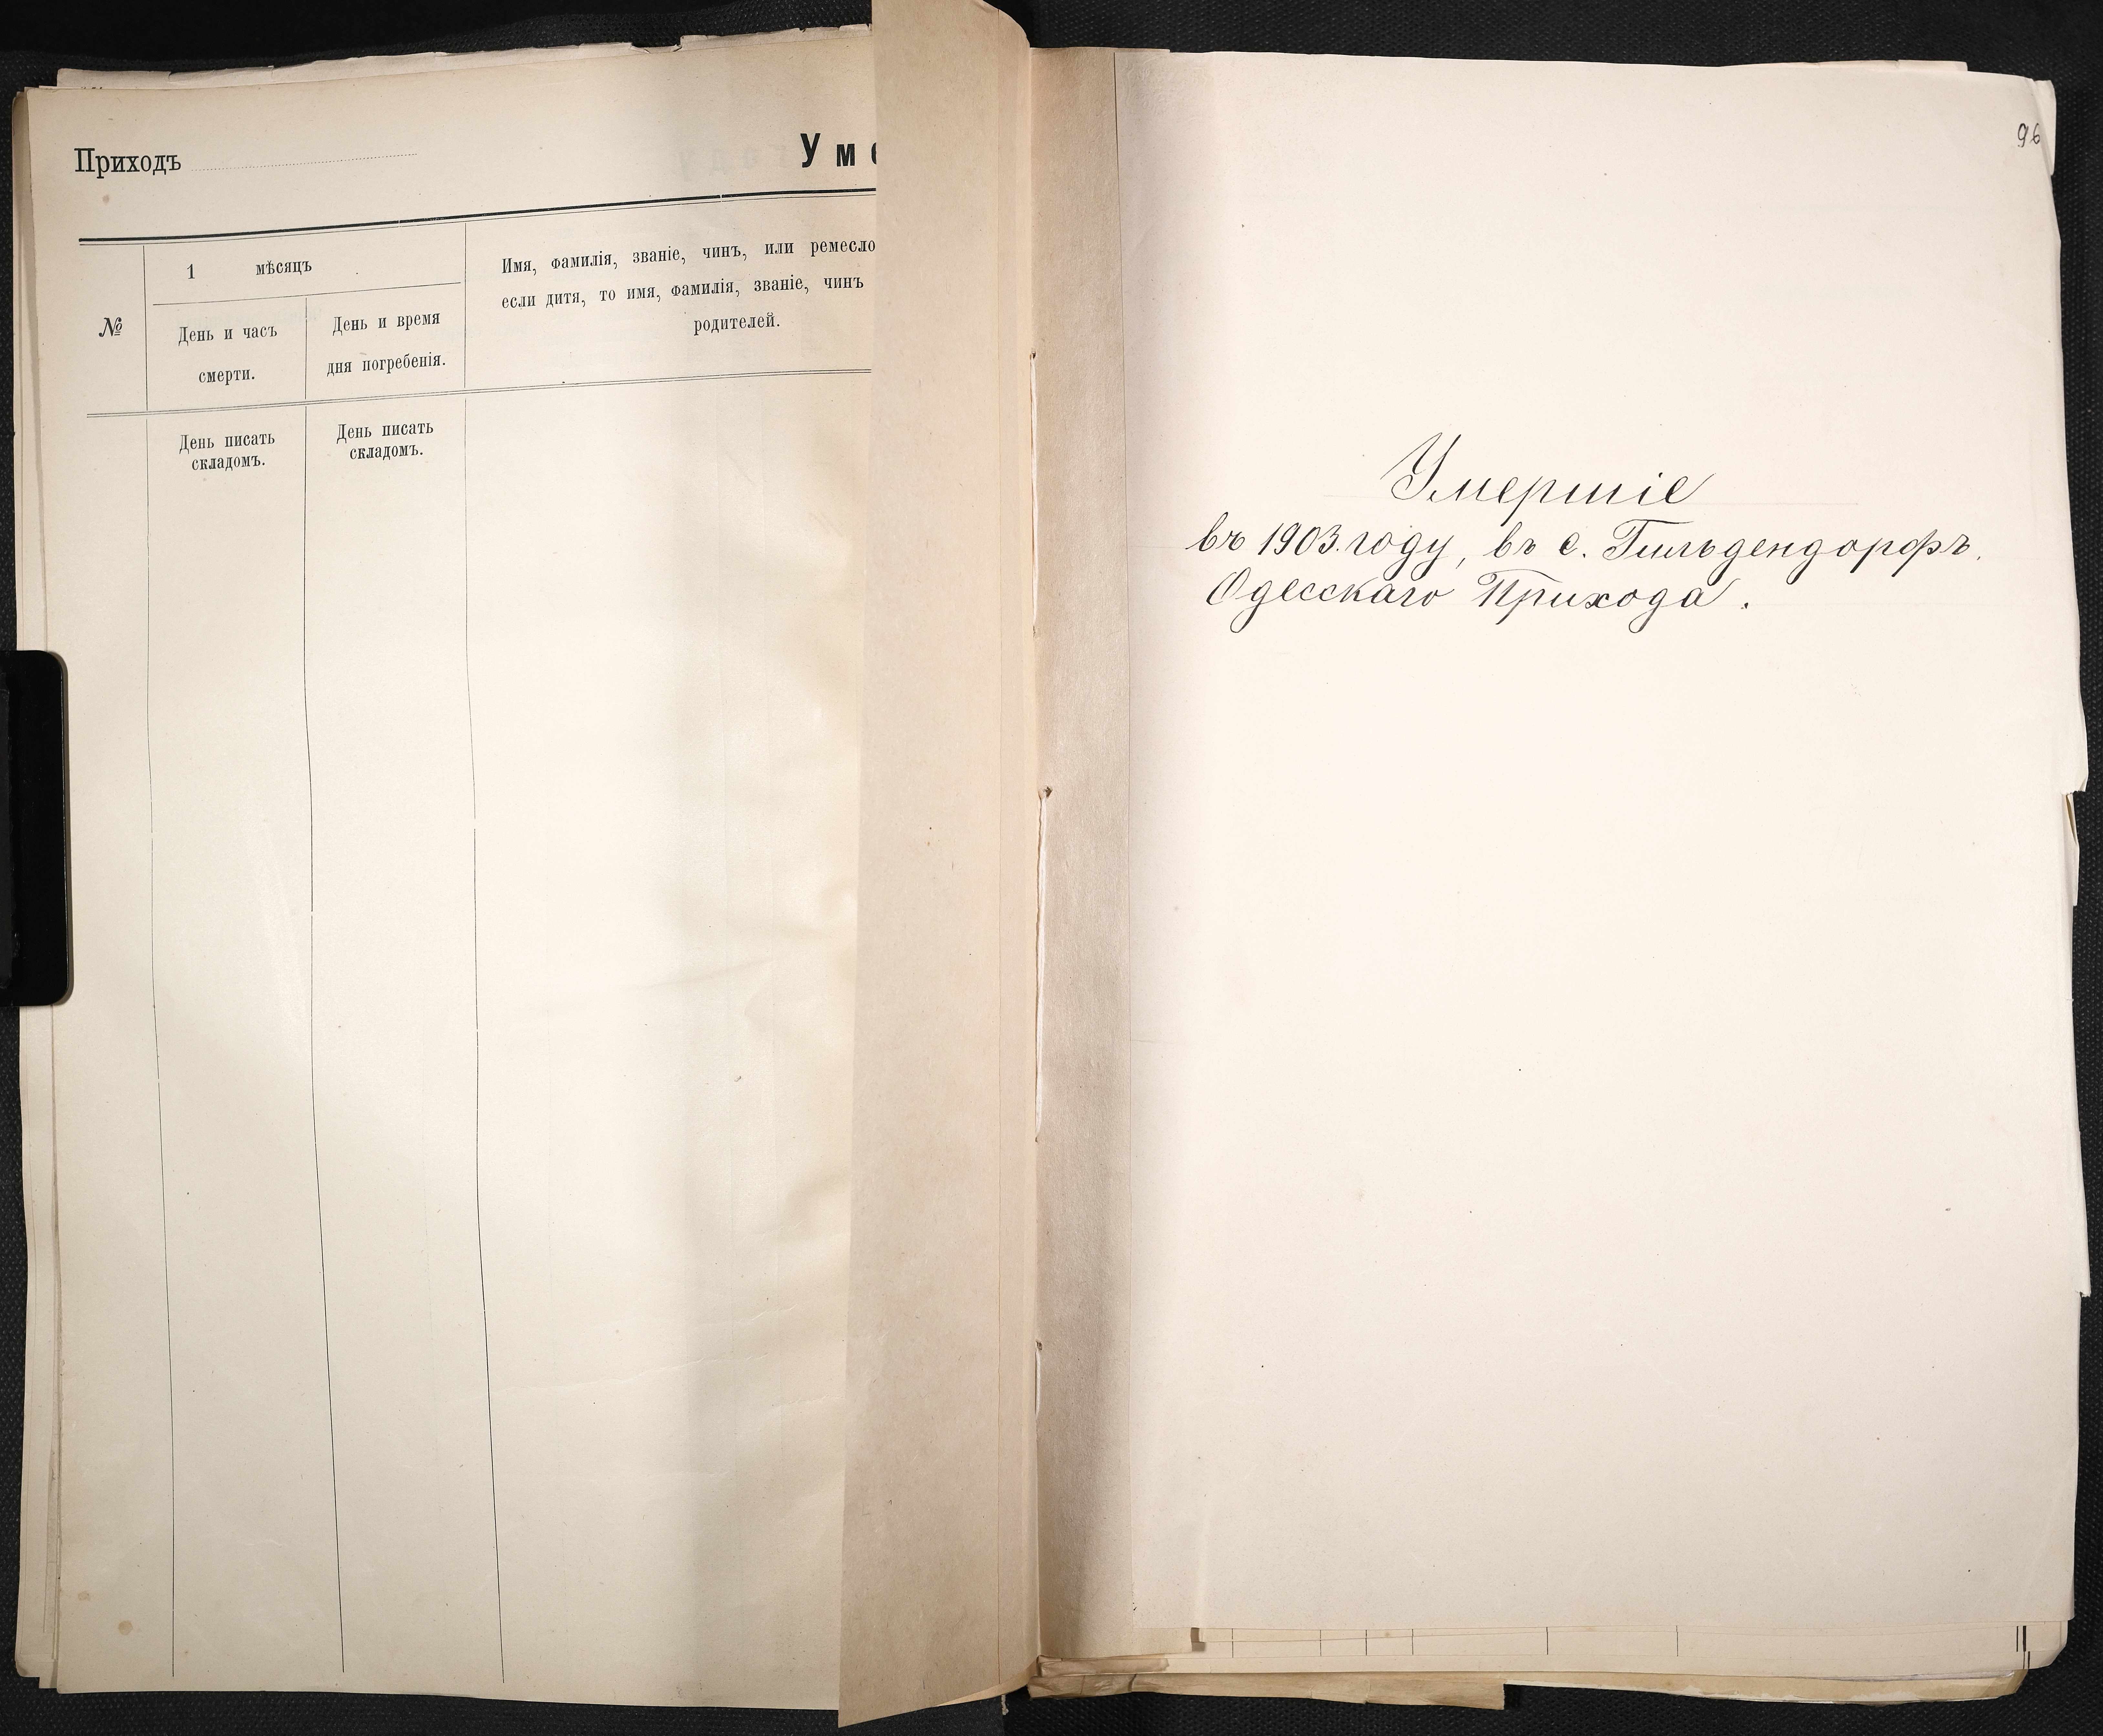 Приходъ
Уме
№
1 мѣсяцъ
День и часъ
смерти.
День и время
дня погребенія.
Имя, фамилія, званіе, чинъ, или ремесло
если дитя, то имя, фамилія, званіе, чинъ
родителей.
День писать
складомъ.
День писать
складомъ.
96
Умершіе
въ 1903. году, въ с. Гильдендорфъ.
Одесскаго Прихода.